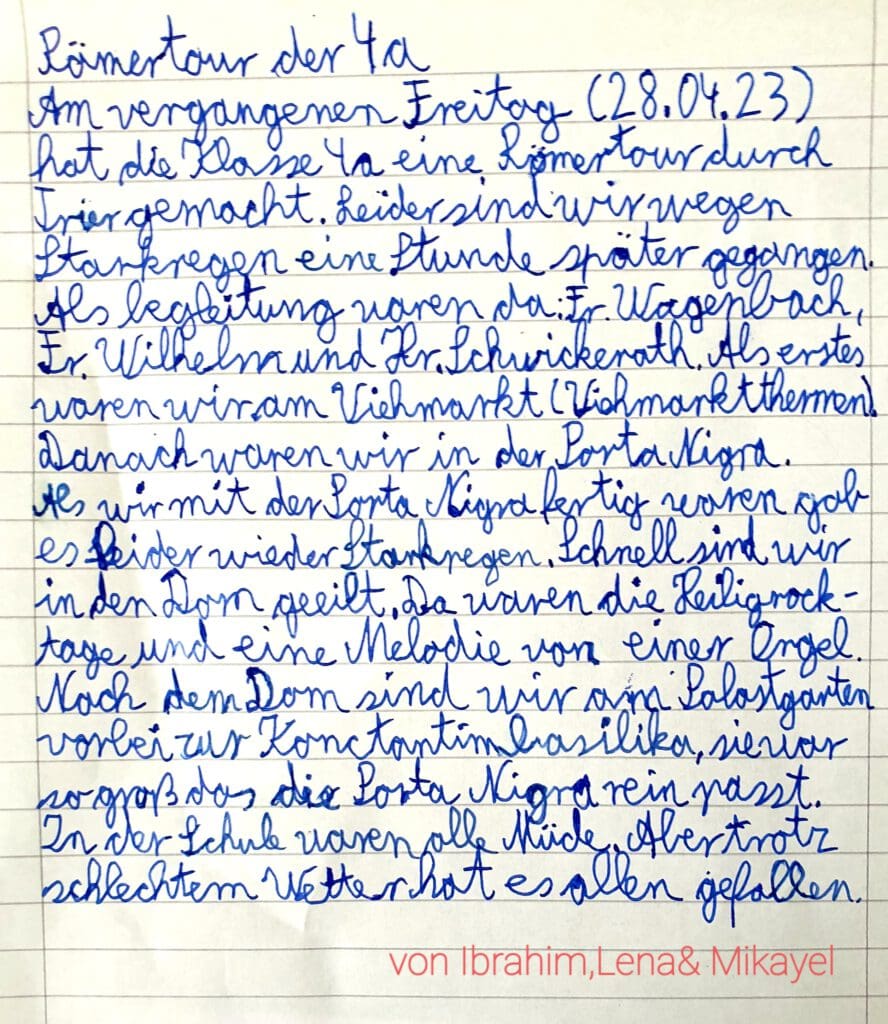 Römertour der 4a
Am vergangenen Freitag (28.04.23)
hat die Klasse 4a eine Römertour durch
Trier gemacht. Leider sind wir wegen
Starkregen eine Stunde später gegangen.
Als begleitung waren da: Fr. Wagenbach,
Fr. Wilhelm und Hr. Schwickerath. Als erstes
waren wir am Viehmarkt (Viehmarktthermen).
Danach waren wir in der Porta Nigra.
Als wir mit der Porta Nigra fertig waren gab
es leider wieder Starkregen. Schnell sind wir
in den Dom geeilt. Da waren die Heiligrock-
tage und eine Melodie von einer Orgel.
Nach dem Dom sind wir am Palastgarten
vorbei zur Konctantimbasilika, sie war
so groß das die Porta Nigra rein passt.
In der Schule waren alle Müde. Aber trotz
schlechtem Wetter hat es allen gefallen.
von Ibrahim,Lena& Mikayel